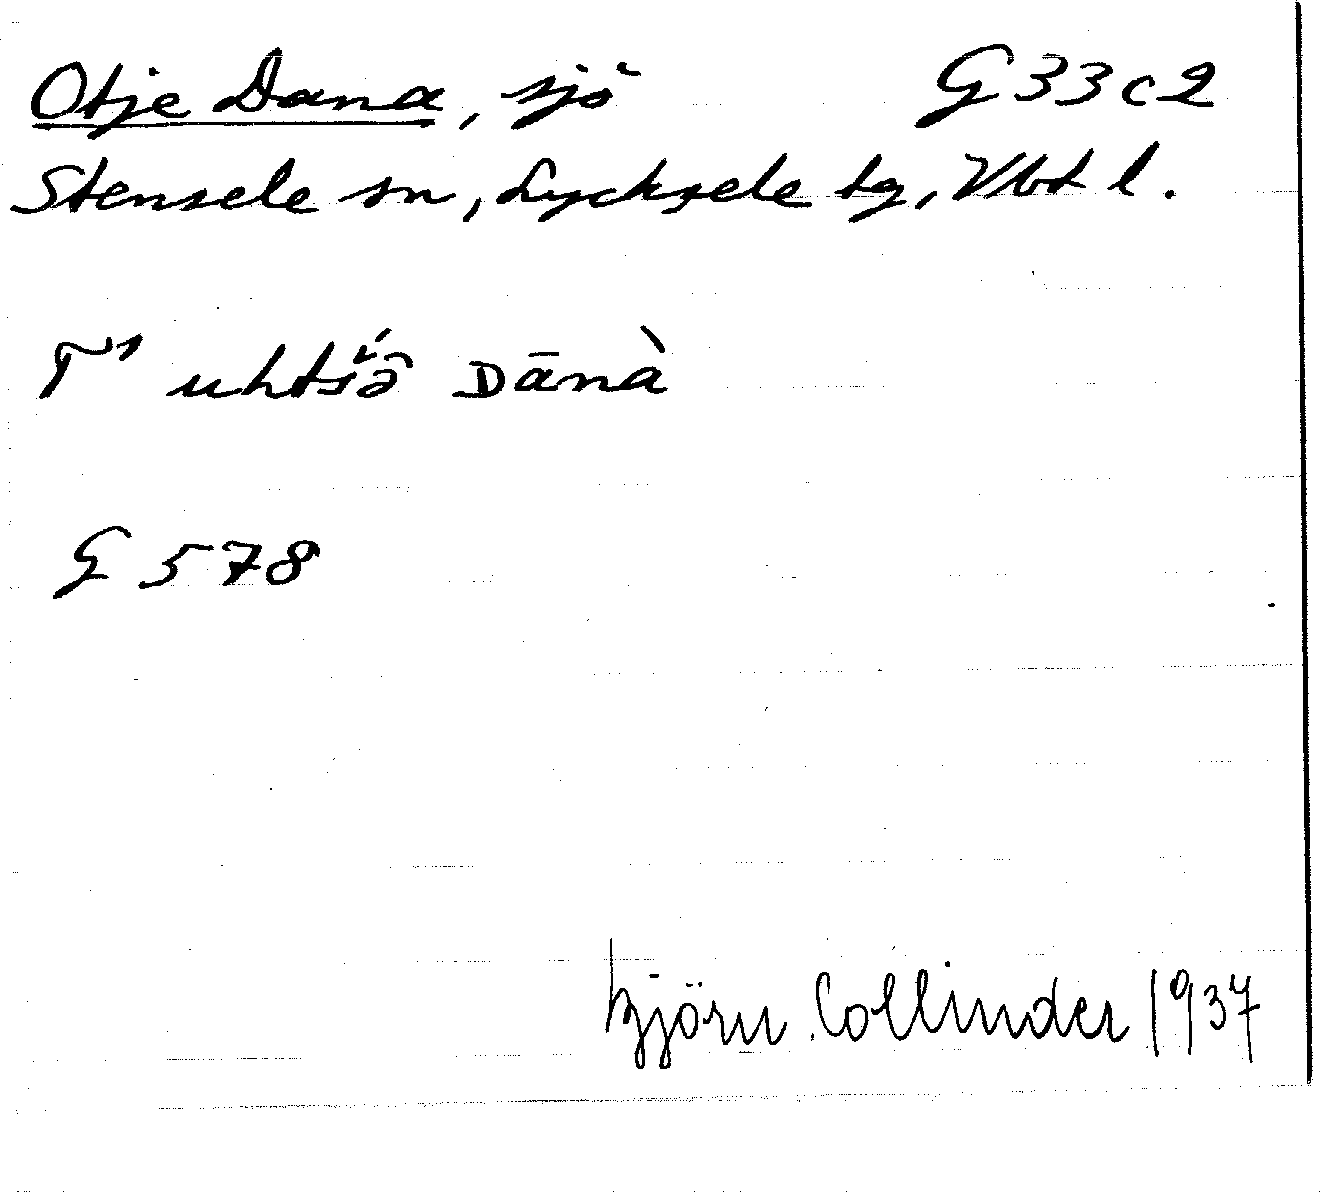 Otje Dana, sjö G 33 c 2
Stensele sn, Lycksele tg, Vbt l.
T¹ uhtš́ə̑ Dānà
G 578
Björn Collinder 1937